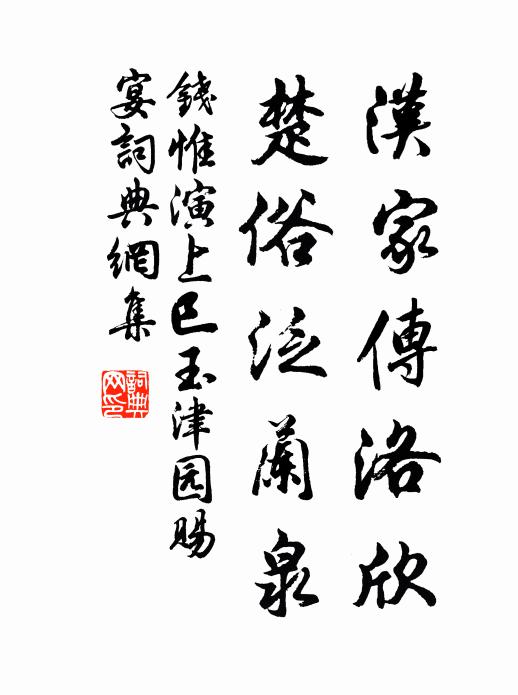 漢家傳洛欣
楚俗泛蘭泉
錢惟演上巳玉津园賜
宴詞典網集
詞典网印